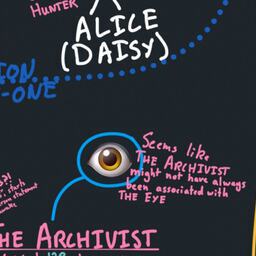 HUNTER
ALICE
(DAISY)
ION
-ONE
Seems like
THE ARCHIVIST
might not have always
been associated with
THE EYE
?!
starts
statement
HE ARCHIVIST